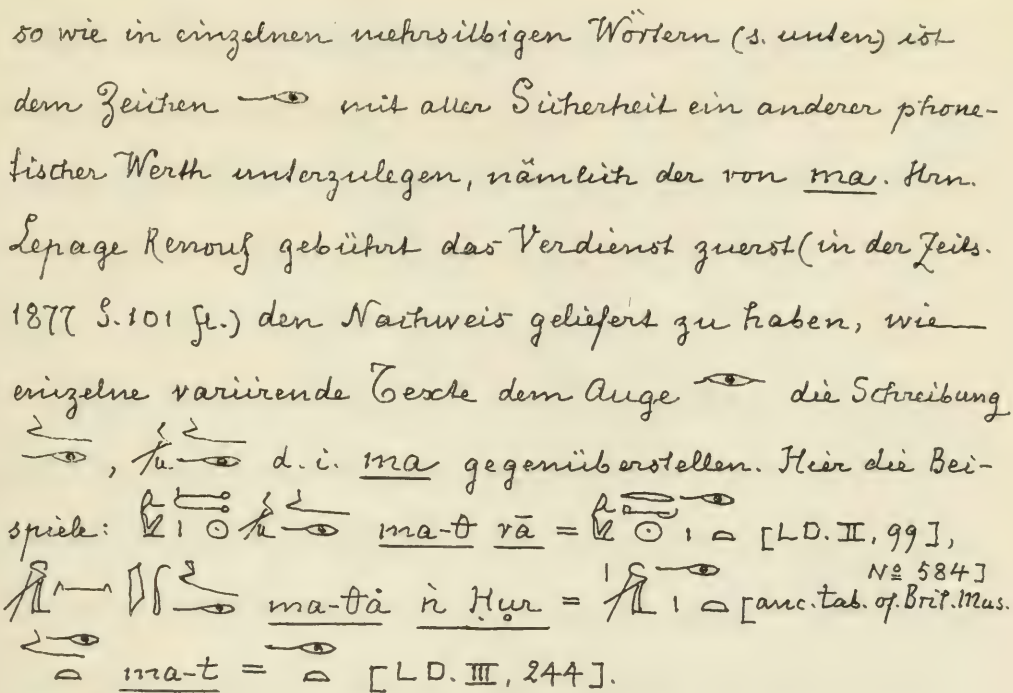 so wie in einzelnen mehrsilbigen Wörtern (s. unten) ist
dem Zeichen 𓁹 mit aller Sicherheit ein anderer phone-
tischer Werth unterzulegen, nämlich der von ma. Hrn.
Lepage Renouf gebührt das Verdienst zuerst (in der Zeits.
1877 S. 101 fl.) den Nachweis geliefert zu haben, wie
einzelne variirende Texte dem Auge 𓁹 die Schreibung
, d. i. ma gegenüberstellen. Hier die Bei-
spiele: ma-t rā = [LD. II, 99],
ma-tȧ ṅ Ḥur = [anc. tab. of Brit. Mus. Nº 584]
ma-t = [LD. III, 244].